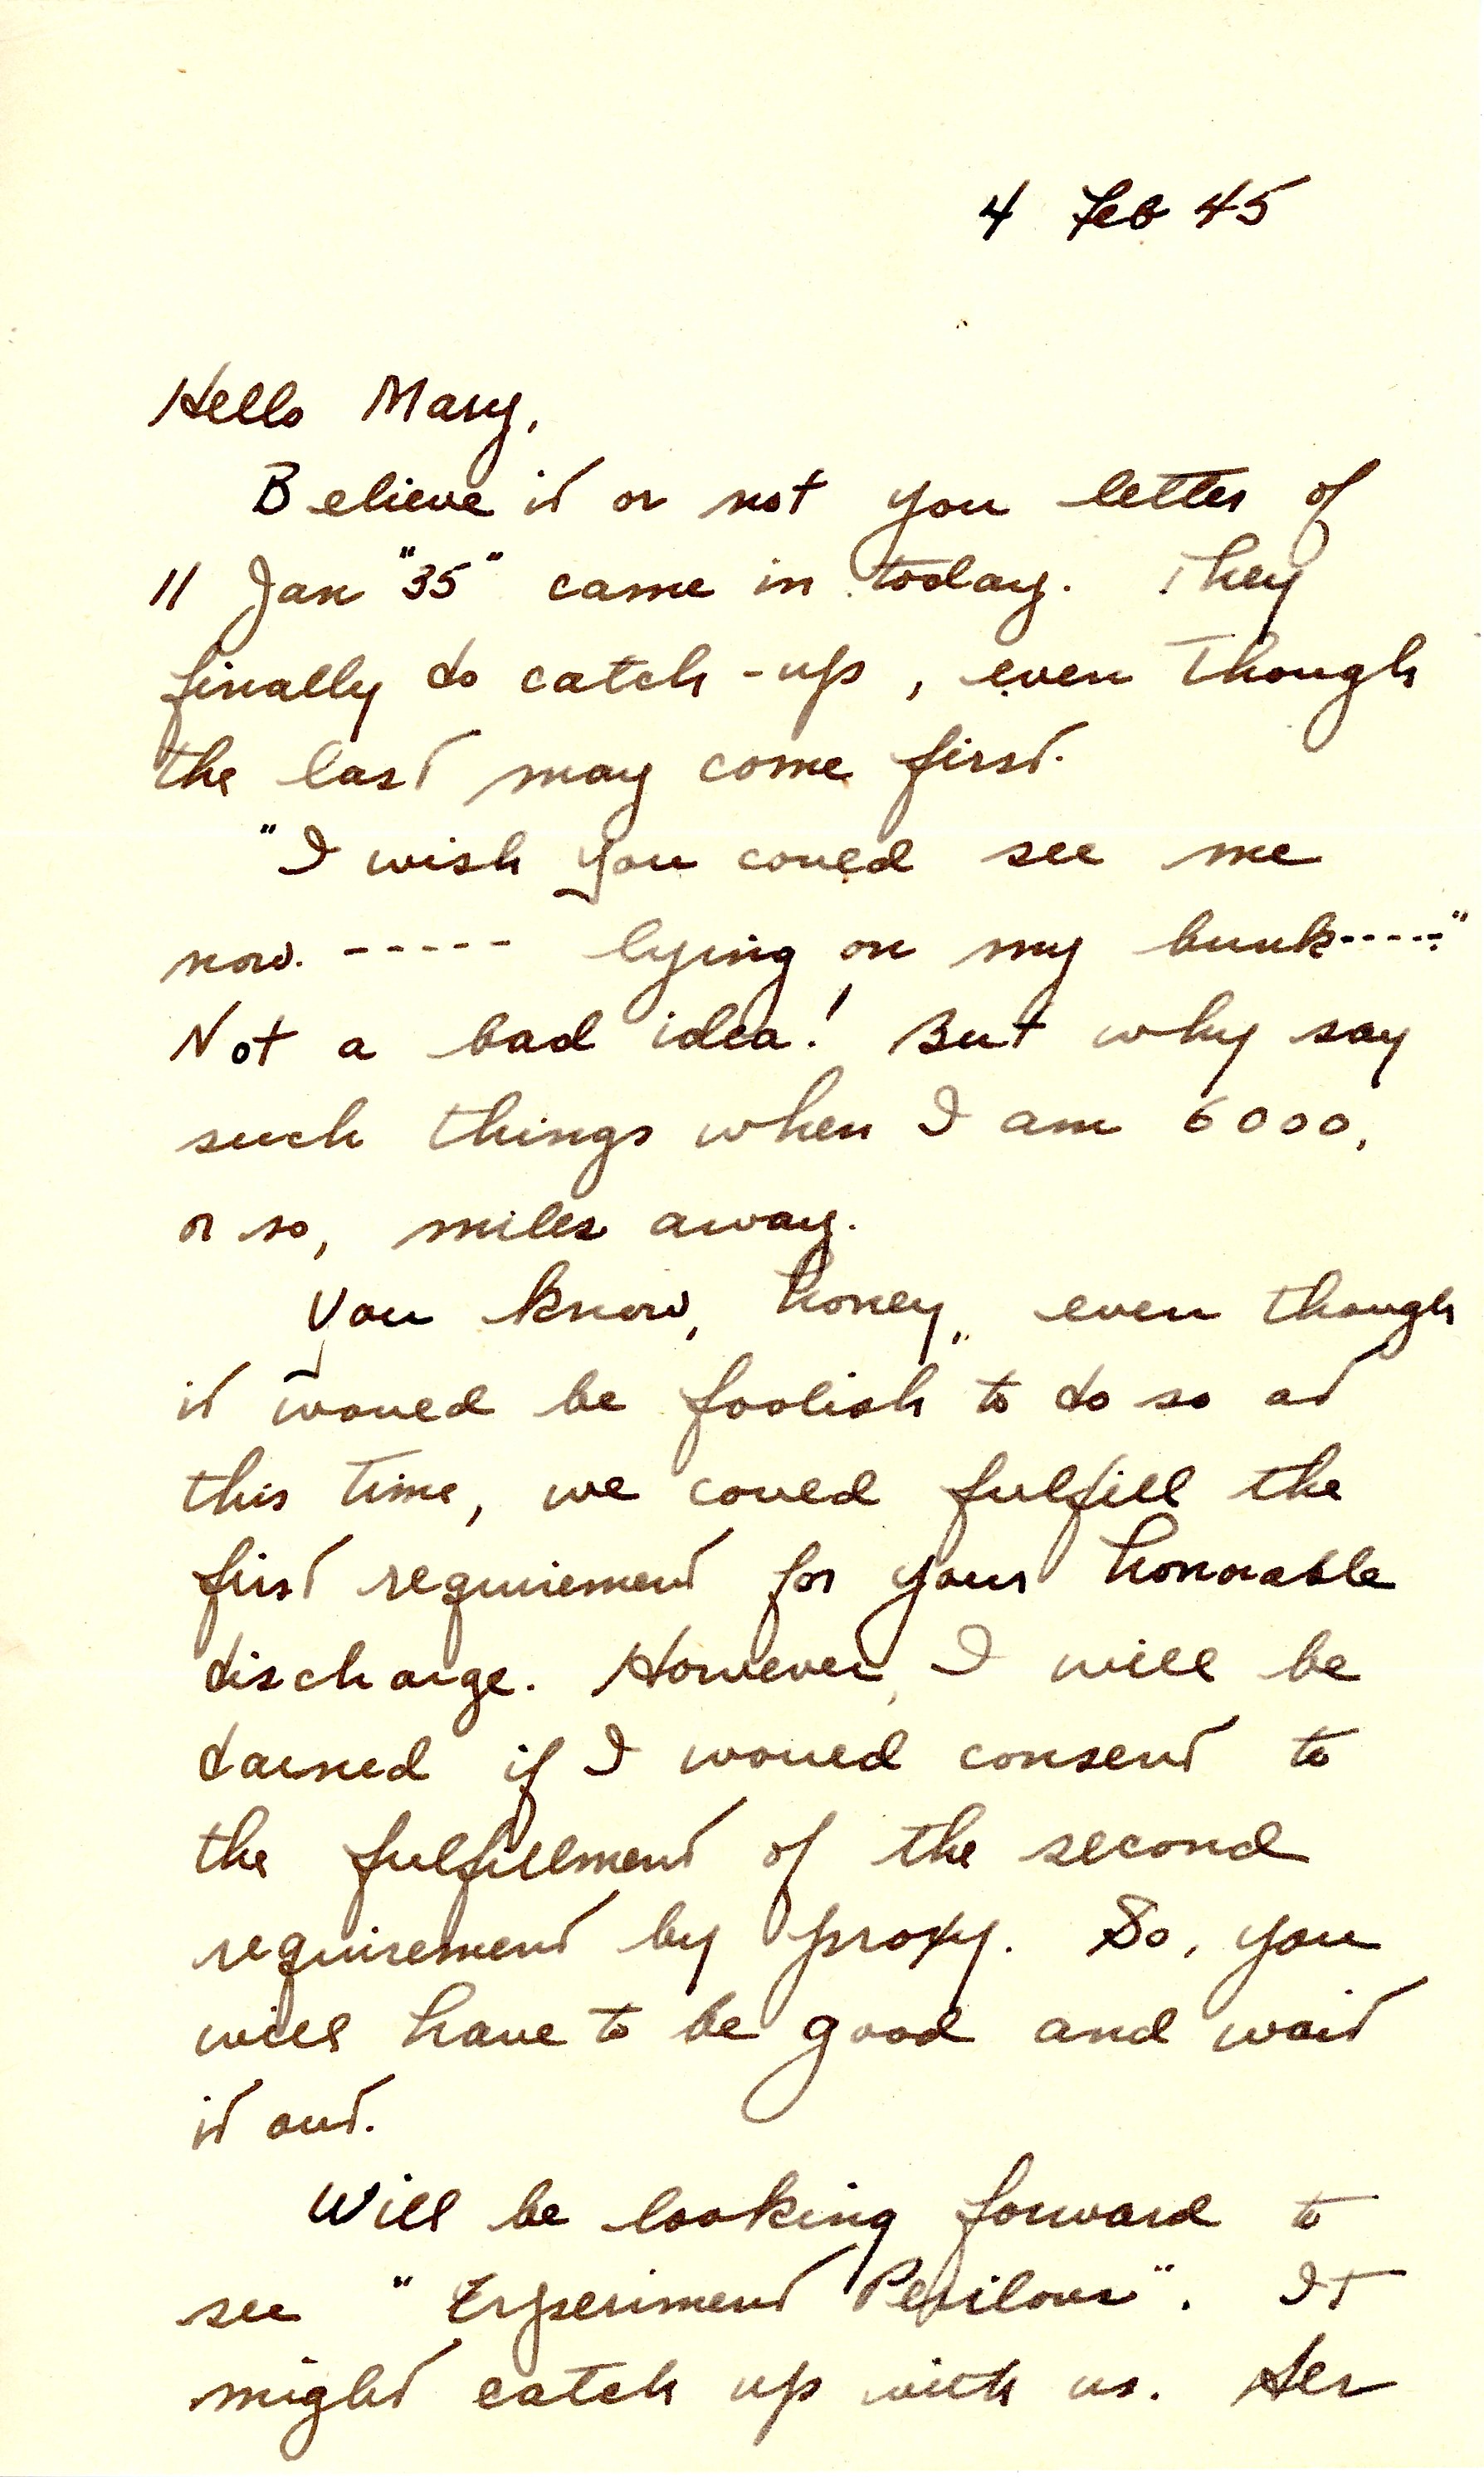 4 Feb 45
Hello Mary,
Believe it or not you letter of
11 Jan "35" came in today. They
finally do catch-up, even though
the last may come first.
"I wish you could see me
now. ----- lying on my bunk-----."
Not a bad idea! But why say
such things when I am 6000,
or so, miles away.
You know, honey, even though
it would be foolish to do so at
this time, we could fulfill the
first requirement for your honorable
discharge. However, I will be
darned if I would consent to
the fulfillment of the second
requirement by proxy. So, you
will have to be good and wait
it out.
Will be looking forward to
see "Experiment Perilous". It
might catch up with us. Her